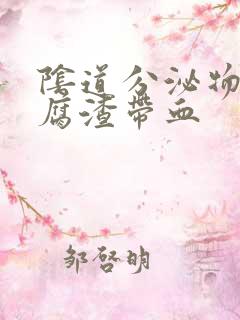 陰道分泌物
腐渣帶血
鄒啓明